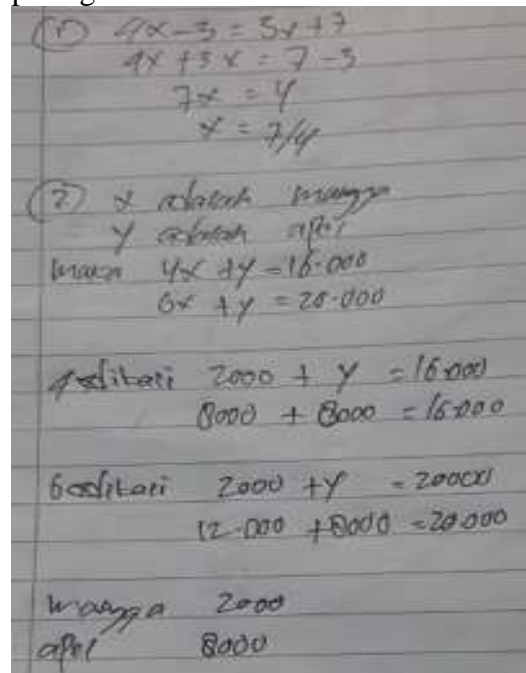 ① 4x-3 = 3x+7
4x+3x = 7-3
7x = 4
x = 7/4
② x adalah mangga
y adalah apel
maka 4x+y = 16.000
6x+y = 20.000
4 dikali 2000 + y = 16.000
8000 + 8000 = 16.000
6 dikali 2000 + y = 20000
12.000 + 8000 = 20.000
mangga 2000
apel 8000